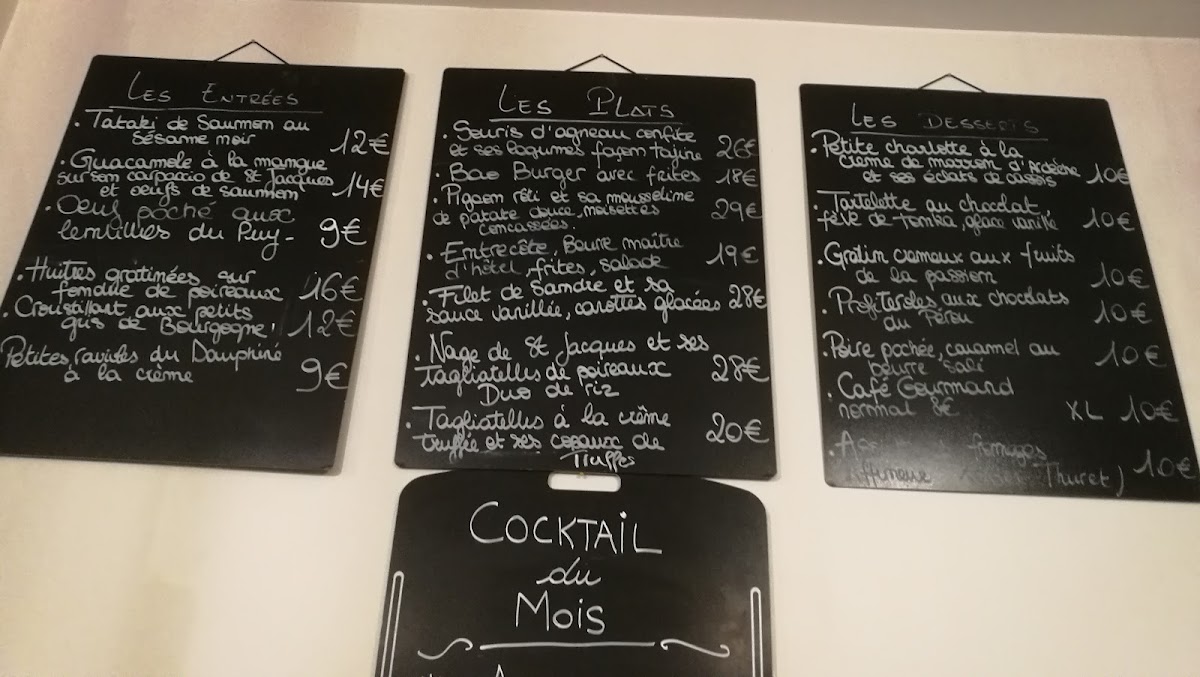 LES ENTRÉES
. Tataki de Saumon au
Sésame noir 12€
. Guacamole à la mangue
sur son carpaccio de St Jacques
et oeufs de saumon 14€
. Oeuf poché aux
lentilles du Puy- 9€
. Huîtres gratinées sur
fondue de poireaux 16€
. Croustillant aux petits
gris de Bourgogne! 12€
Petites ravioles du Dauphiné
à la crème 9€
LES PLATS
. Souris d'agneau confite
et ses légumes façon tajine 26€
. Bao Burger avec frites 18€
. Pigeon rôti et sa mousseline
de patate douce, noisettes
concassées. 29€
. Entrecôte, Beurre maître
d'hôtel, frites, salade 19€
. Filet de Sandre et sa
sauce vanillée, carottes glacées 28€
. Nage de St Jacques et ses
Tagliatelles de poireaux
Duo de riz 28€
. Tagliatelles à la crème
truffée et ses copeaux de
Truffes 20€
LES DESSERTS
. Petite charlotte à la
crème de marron d'Ardèche
et ses éclats de cassis 10€
. Tartelette au chocolat,
fève de Tonka, glace vanille 10€
. Gratin crémeux aux fruits
de la passion 10€
. Profiteroles aux chocolats
du Pérou 10€
. Poire pochée, caramel au
beurre salé 10€
. Café Gourmand
normal 8€ XL 10€
. fromages
Thuret) 10€
COCKTAIL
du
MOIS